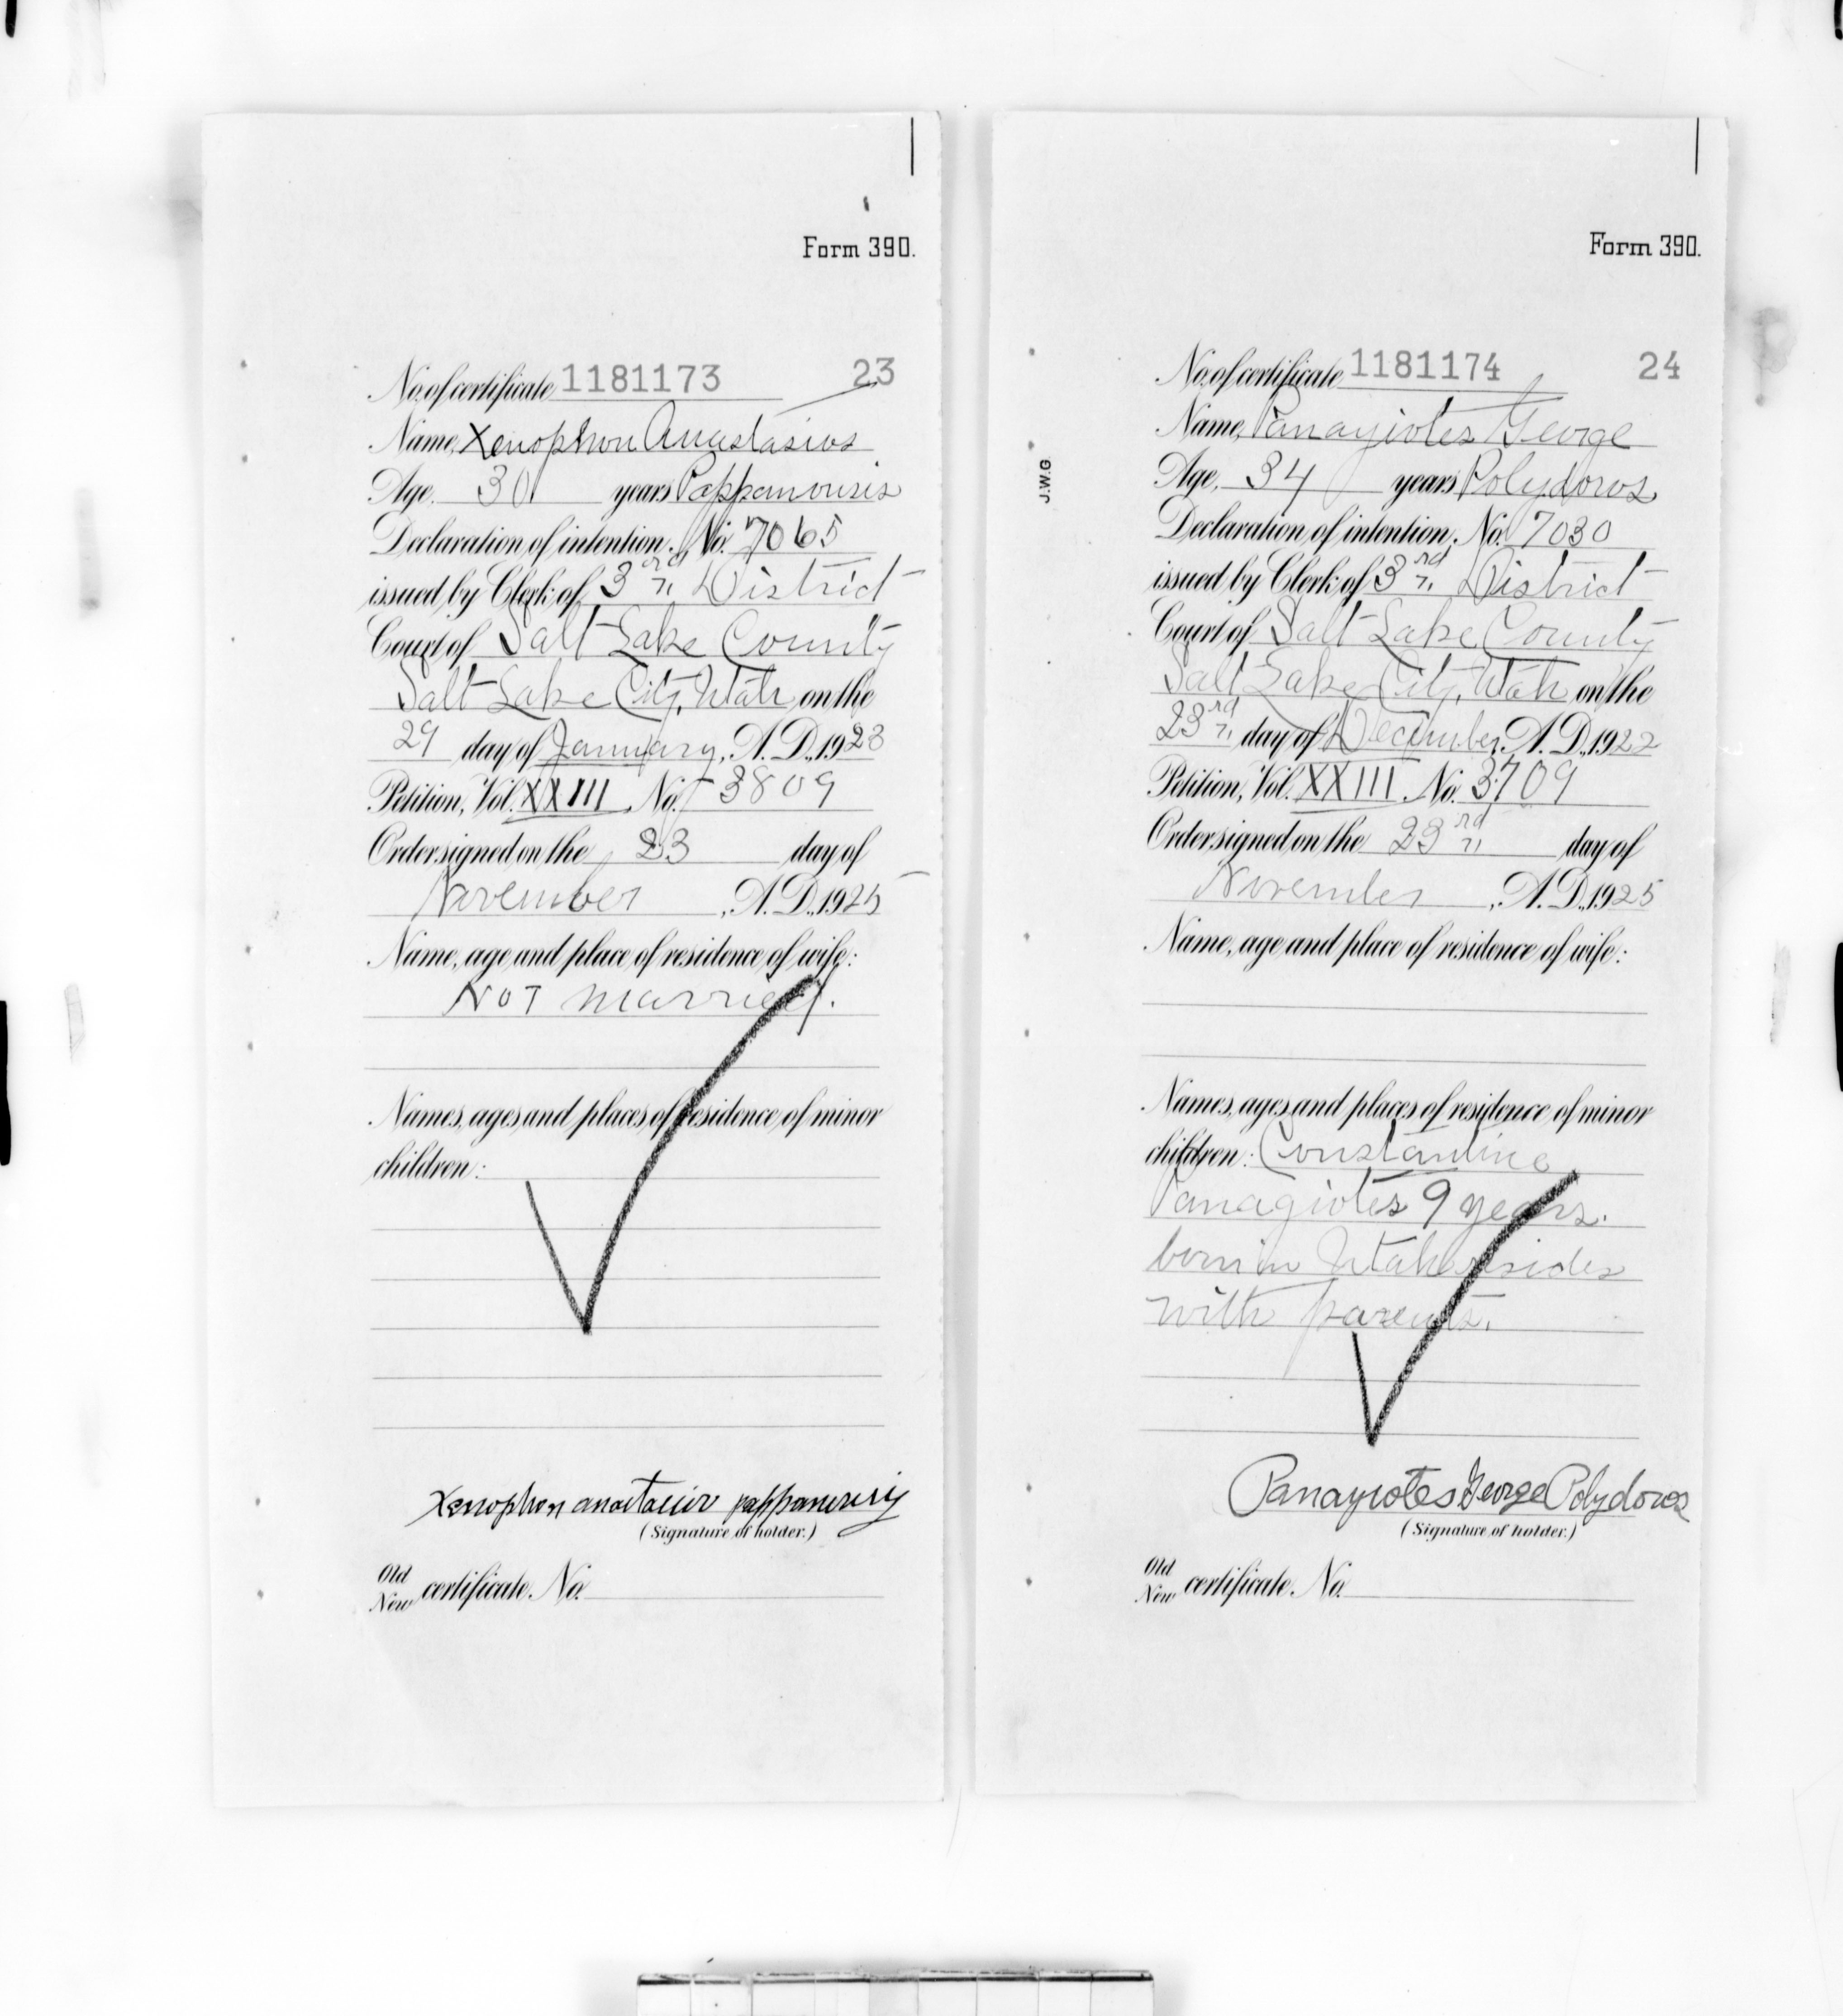 Form 390.
No. of certificate 1181173 23
Name, Xenophon Anastasios
Age, 30 years Pappanousis
Declaration of intention, No. 7065
issued by Clerk of 3rd District
Court of Salt Lake County
Salt Lake City, Utah on the
29 day of January, A. D., 1923
Petition, Vol. XXIII, No. 3809
Order signed on the 23 day of
November, A. D., 1925
Name, age and place of residence of wife:
Not married.
Names, ages and places of residence of minor
children:
Xenophon anastasios
(Signature of holder.)
Old
New certificate No.
J.W.G
Form 390.
No. of certificate 1181174 24
Name, Panayiotes George
Age, 34 years Polydoros
Declaration of intention, No. 7030
issued by Clerk of 3rd District
Court of Salt Lake County
Salt Lake City, Utah on the
23rd day of December, A. D., 1922
Petition, Vol. XXIII, No. 3709
Order signed on the 23rd day of
November, A. D., 1925
Name, age and place of residence of wife:
Names, ages and places of residence of minor
children: Constantine
Panagiotes 9 years.
born in Utah resides
with parents.
Panayiotes George Polydoros
(Signature of holder.)
Old
New certificate No.